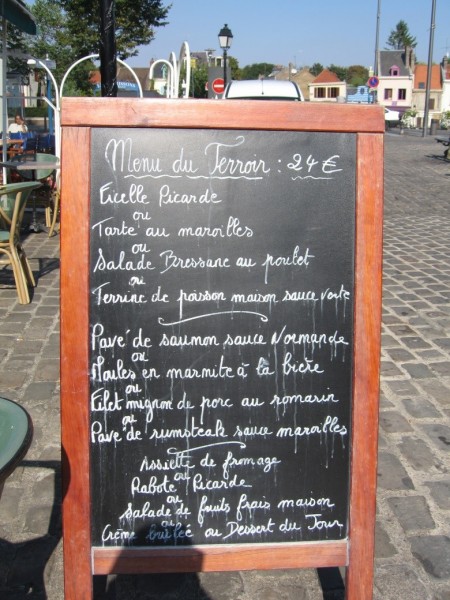 Menu du Terroir : 24 €
Ficelle Picarde
ou
Tarte au maroilles
ou
Salade Bressane au poulet
ou
Terrine de poisson maison sauce verte
Pavé de saumon sauce Normande
ou
Moules en marmite à la bière
ou
Filet mignon de porc au romarin
ou
Pavé de rumsteak sauce maroilles
Assiette de fromage
ou
Rabote Picarde
ou
Salade de fruits frais maison
ou
Crème brulée ou Dessert du Jour